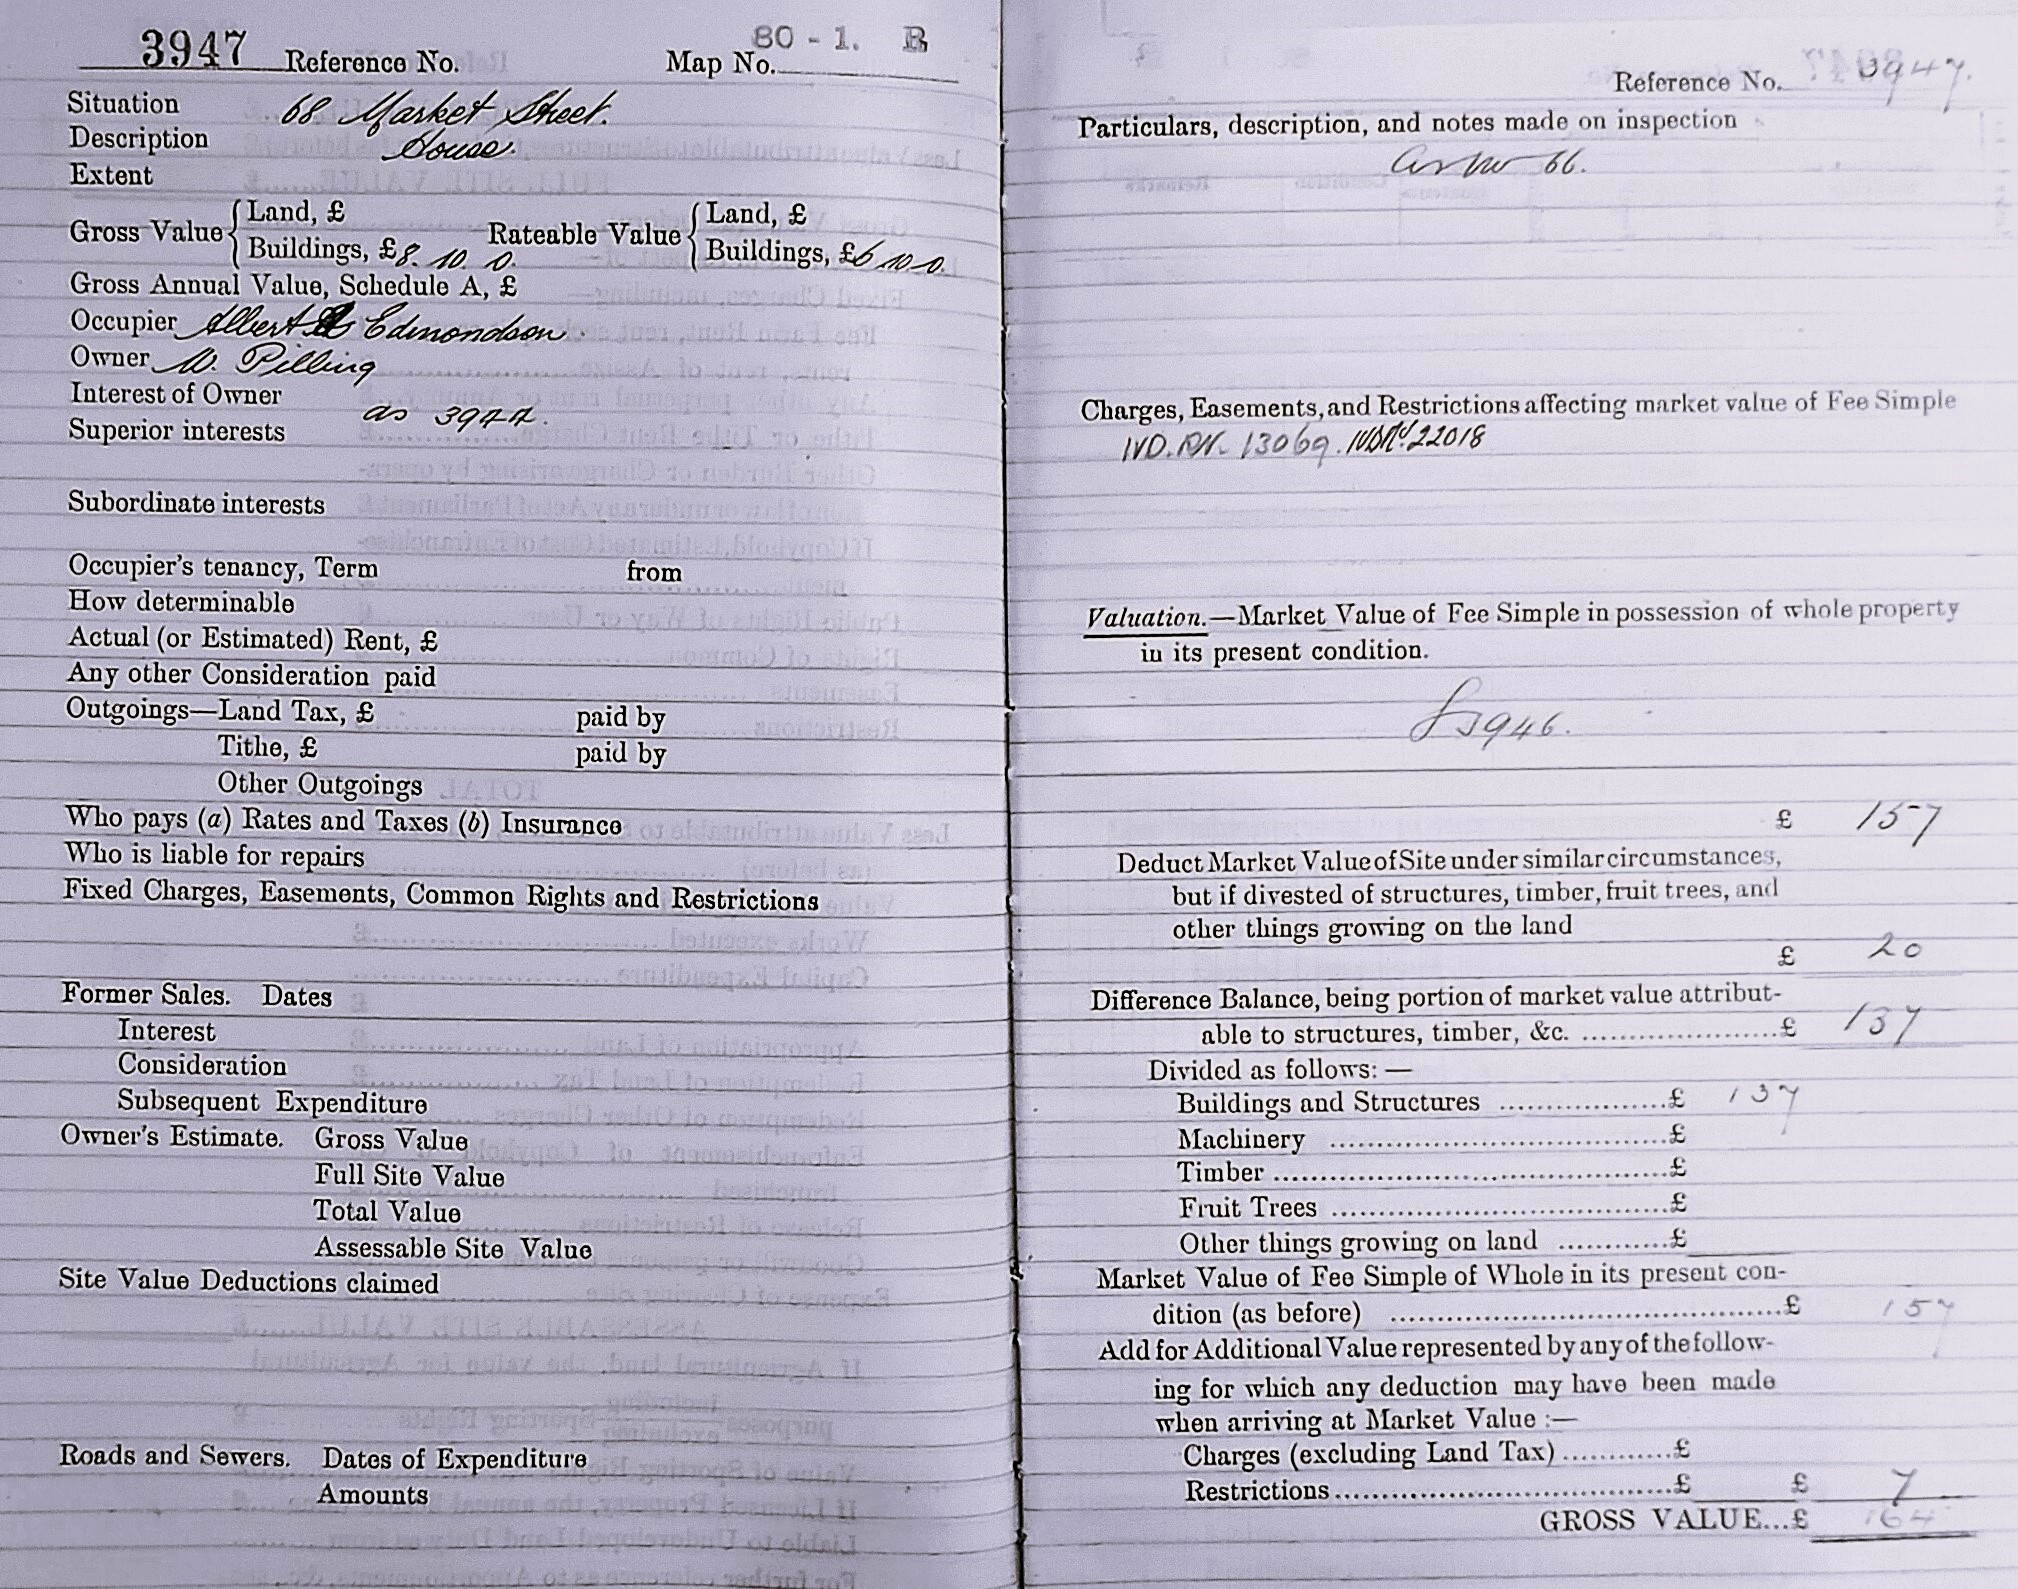 3947 Reference No. Map No. 80 - 1. B
Situation 68 Market Street.
Description House.
Extent
Gross Value { Land, £ Rateable Value { Land, £
Buildings, £8. 10. 0. Buildings, £6 10 0.
Gross Annual Value, Schedule A, £
Occupier Albert Edmondson.
Owner W. Pilling
Interest of Owner
as 3944.
Superior interests
Subordinate interests
Occupier's tenancy, Term from
How determinable
Actual (or Estimated) Rent, £
Any other Consideration paid
Outgoings—Land Tax, £ paid by
Tithe, £ paid by
Other Outgoings
Who pays (a) Rates and Taxes (b) Insurance
Who is liable for repairs
Fixed Charges, Easements, Common Rights and Restrictions
Former Sales. Dates
Interest
Consideration
Subsequent Expenditure
Owner's Estimate. Gross Value
Full Site Value
Total Value
Assessable Site Value
Site Value Deductions claimed
Roads and Sewers. Dates of Expenditure
Amounts
Reference No. 3947.
Particulars, description, and notes made on inspection
as No 66.
Charges, Easements, and Restrictions affecting market value of Fee Simple
IVD. RN. 13069. 22018
Valuation.—Market Value of Fee Simple in possession of whole property
in its present condition.
3946.
£ 157
Deduct Market Value of Site under similar circumstances,
but if divested of structures, timber, fruit trees, and
other things growing on the land
£ 20
Difference Balance, being portion of market value attribut-
able to structures, timber, &c. ....................£ 137
Divided as follows:—
Buildings and Structures ...................£ 137
Machinery ......................................£
Timber ..........................................£
Fruit Trees ......................................£
Other things growing on land ............£
Market Value of Fee Simple of Whole in its present con-
dition (as before) ............................................£ 157
Add for Additional Value represented by any of the follow-
ing for which any deduction may have been made
when arriving at Market Value :—
Charges (excluding Land Tax) ............£
Restrictions ......................................£ £ 7
GROSS VALUE...£ 164